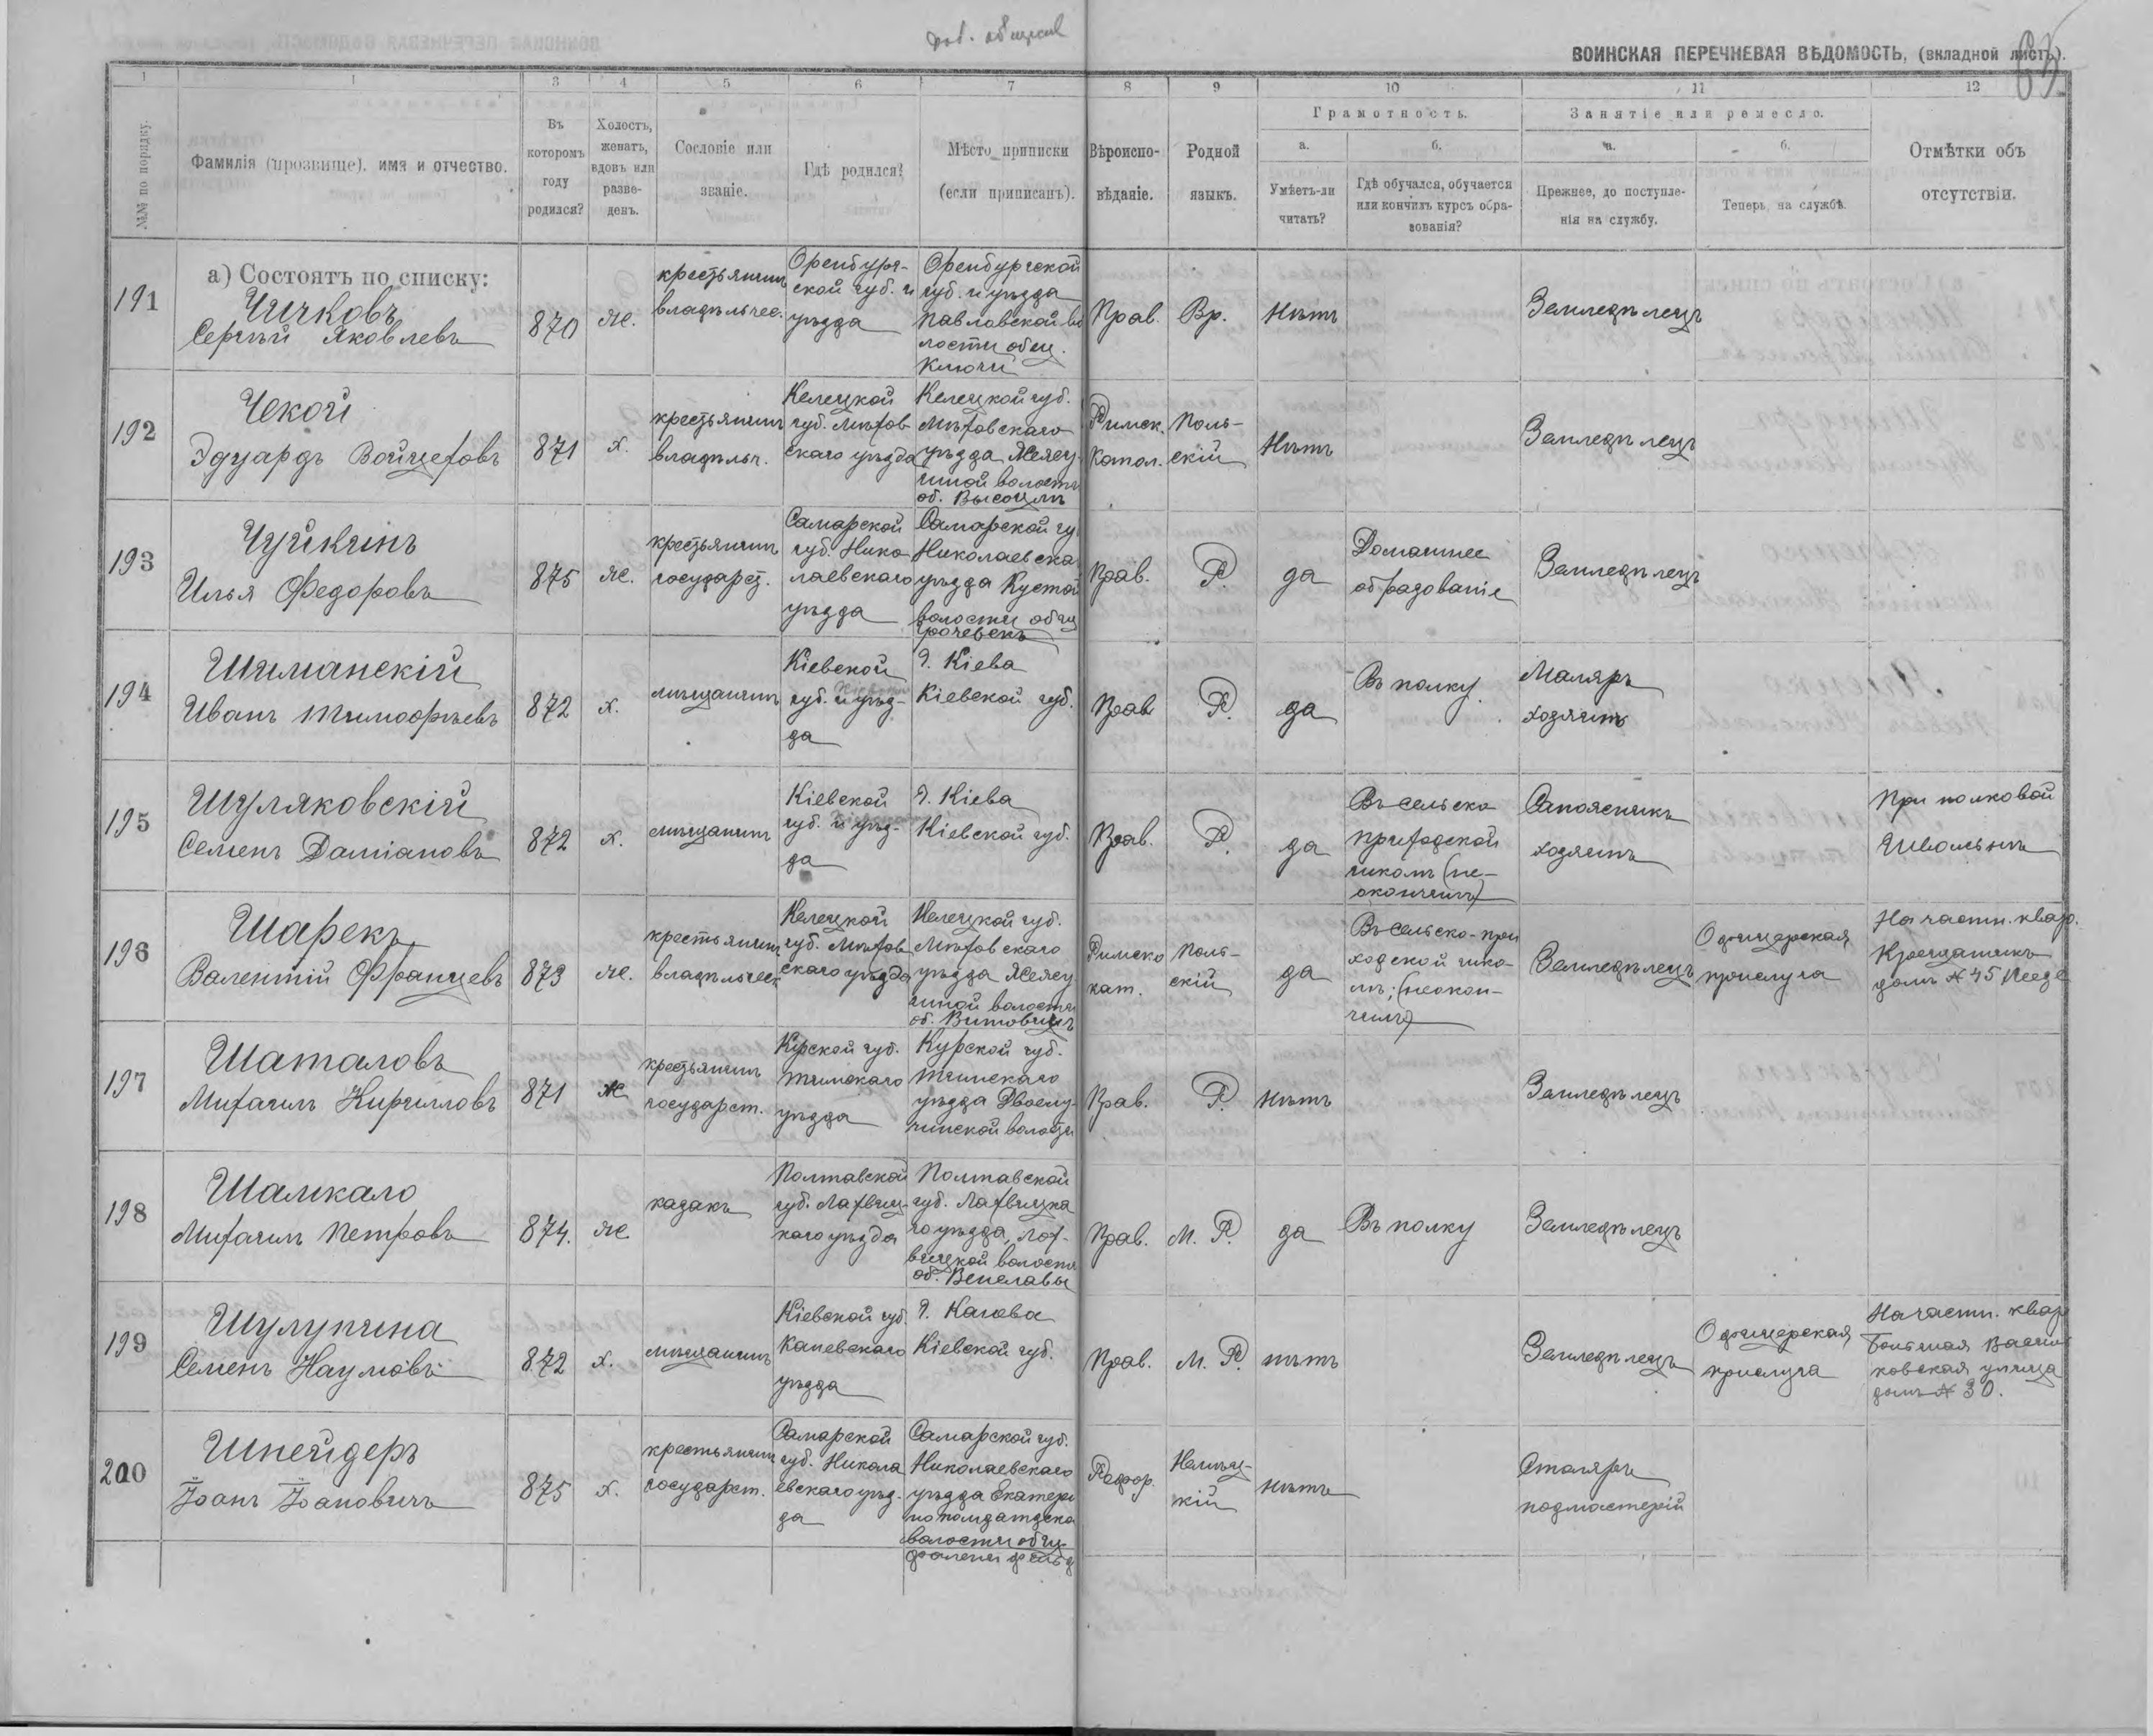 ВОИНСКАЯ ПЕРЕЧНЕВАЯ ВѢДОМОСТЬ, (вкладной листъ).
1 1 3 4 5 6 7 8 9 10 11 12
№№ по порядку.
Фамилія (прозвище), имя и отчество.
Въ которомъ году родился?
Холостъ, женатъ, вдовъ или разве-денъ.
Сословіе или званіе.
Гдѣ родился?
Мѣсто приписки (если приписанъ).
Вѣроиспо-вѣданіе.
Родной языкъ.
Грамотность.
а. Умѣетъ-ли читать?
б. Гдѣ обучался, обучается или кончилъ курсъ обра-зованія?
Занятіе или ремесло.
а. Прежнее, до поступле-нія на службу.
б. Теперь, на службѣ.
Отмѣтки объ отсутствіи.
а) Состоятъ по списку:
191
Чичковъ
Сергѣй Яковлевъ
870
же.
крестьянинъ
владѣльчес.
Оренбург-
ской губ. и
уѣзда
Оренбургской
губ. и уѣзда
Павловской во
лости общ.
Ключи
Прав.
Вр.
нѣтъ
Земледѣлецъ
192
Чекой
Эдуардъ Войцеховъ
871
х.
крестьянинъ
владѣльч.
Келецкой
губ. Мѣхов
скаго уѣзда
Келецкой губ.
Мѣховскаго
уѣзда
волости
об.
Римск.
Катол.
Поль-
скій
Нѣтъ
Земледѣлецъ
193
Чуйкинъ
Илья Федоровъ
875
же.
крестьянинъ
государст.
Самарской
губ. Нико
лаевскаго
уѣзда
Самарской гу
Николаевска
уѣзда
волости общ
Прав.
Р.
да
Домашнее
образованіе
Земледѣлецъ
194
Шиманскій
Иванъ Тимофѣевъ
872
х.
мѣщанинъ
Кіевской
губ. и уѣз-
да
г. Кіева
Кіевской губ.
Прав
Р.
да
Въ полку
Маляръ
хозяинъ
195
Шуляковскій
Семенъ Даміановъ
872
х.
мѣщанинъ
Кіевской
губ. и уѣз-
да
г. Кіева
Кіевской губ.
Прав.
Р.
да
Въ сельско
приходской
школѣ (не-
окончилъ)
Сапожникъ
хозяинъ
При полковой
Швальнѣ
196
Шарекъ
Валентій Францевъ
873
же.
крестьянин
владѣльческ
Келецкой
губ. Мѣхов
скаго уѣзда
Келецкой губ.
Мѣховскаго
уѣзда
волости
об.
Римско
кат.
Поль-
скій
да
Въ сельско-при
ходской шко-
лѣ; (неокон-
чилъ)
Земледѣлецъ
Офицерская
прислуга
На частн. квар.
Крещатикъ
домъ № 45
197
Шаталовъ
Михаилъ Кирилловъ
871
же
крестьянинъ
государст.
Курской губ.
Тимскаго
уѣзда
Курской губ.
Тимскаго
уѣзда Двоелу-
чинской волости
Прав.
Р.
нѣтъ
Земледѣлецъ
198
Шамкало
Михаилъ Петровъ
874.
же.
казакъ
Полтавской
губ. Лахвиц-
каго уѣзда
Полтавской
губ. Лахвицка
го уѣзда, Лох-
вицкой волости
об.
Прав.
М. Р.
да
Въ полку
Земледѣлецъ
199
Шулупина
Семенъ Наумовъ
872
х.
мѣщанинъ
Кіевской губ.
Каневскаго
уѣзда
г. Канева
Кіевской губ.
Прав.
М. Р.
нѣтъ
Земледѣлецъ
Офицерская
прислуга
На частн. квар
Большая Васил
ковская улица
домъ № 30.
200
Шнейдеръ
Іоанъ Іоановичъ
875
х.
крестьянин
государст.
Самарской
губ. Никола
евскаго уѣз-
да
Самарской губ.
Николаевскаго
уѣзда
волости общ.
Рефор.
Нѣмец-
кій
нѣтъ
Столяръ
подмастерій